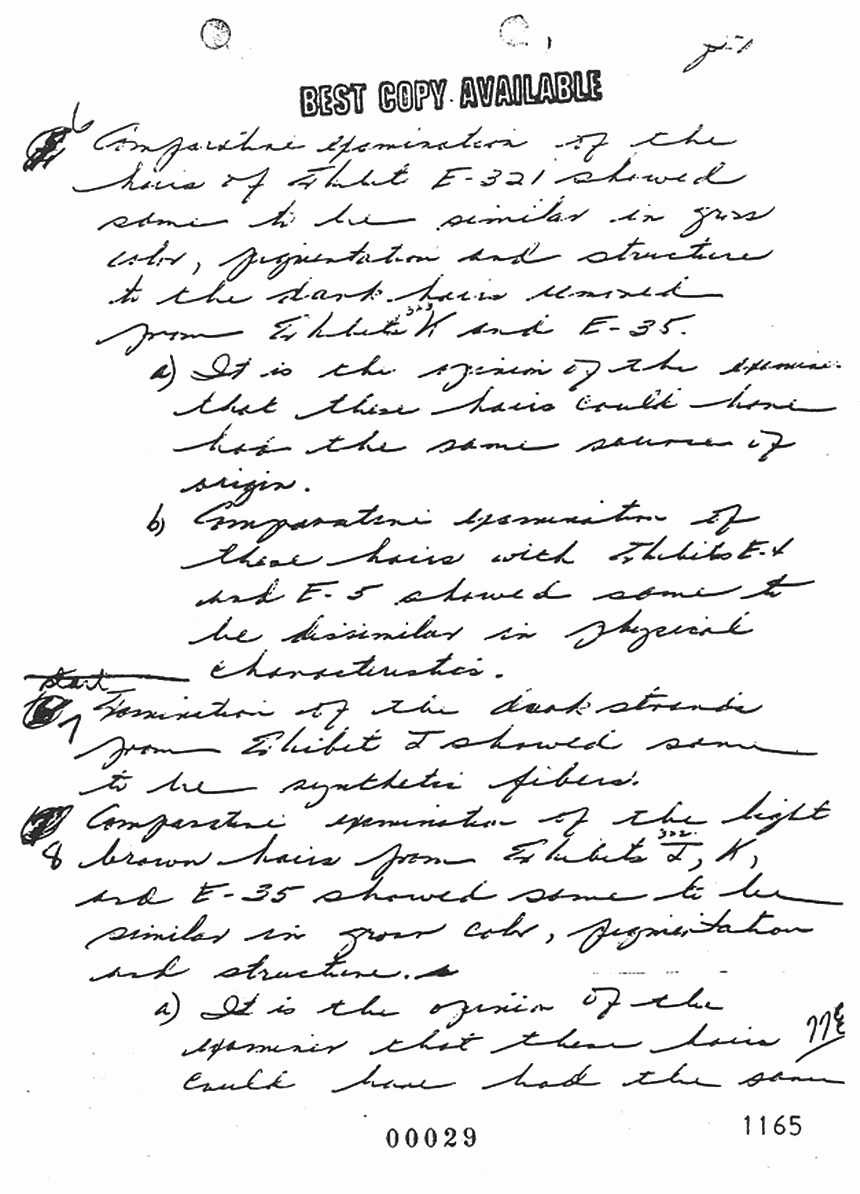 BEST COPY AVAILABLE
6 Comparative examination of the
hairs of Exhibit E-321 showed
same to be similar in gross
color, pigmentation and structure
to the dark hairs removed
323
from Exhibits K and E-35.
a) It is the opinion of the examiner
that these hairs could have
had the same source of
origin.
b) Comparative examination of
these hairs with Exhibits E-4
and E-5 showed same to
be dissimilar in physical
characteristics.
start
7 Examination of the dark strands
from Exhibit I showed same
to be synthetic fibers.
Comparative examination of the light
322
8 brown hairs from Exhibits I, K,
and E-35 showed same to be
similar in gross color, pigmentation
and structure.
a) It is the opinion of the
examiner that these hairs
could have had the same
00029
1165